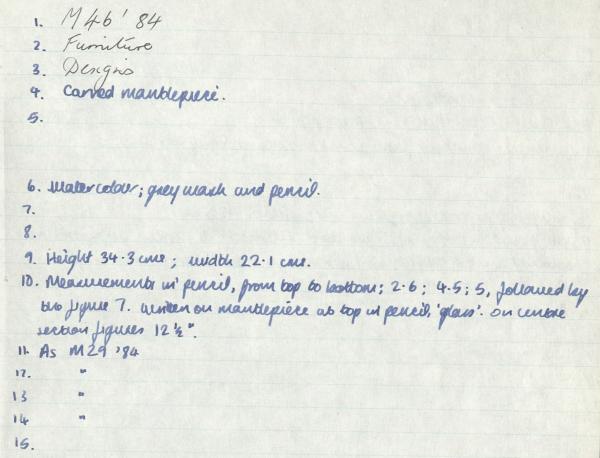 1. M46'84
2. Furniture
3. Designs
4. Carved mantlepiece.
5.
6. Watercolour; grey wash and pencil.
7.
8.
9. Height 34.3 cms; width 22.1 cms.
10. Measurements in pencil, from top to bottom; 2.6; 4.5; 5, followed by
two figure 7. written on mantlepiece at top in pencil, 'glass'. On centre
section figures 12½".
11. As M29 '84
12. "
13 "
14 "
15.